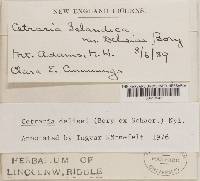 NEW ENGLAND LICHENS.
Cetraria Islandica
var. Delisei Bory
Mt. Adams, N.H. 8/6/89
Clara E. Cummings
Cetraria delisei (Bory ex Schaer.) Nyl.
Annotated by Ingvar Kärnefelt 1976
HERBARIUM OF
LINCOLN W. RIDDLE